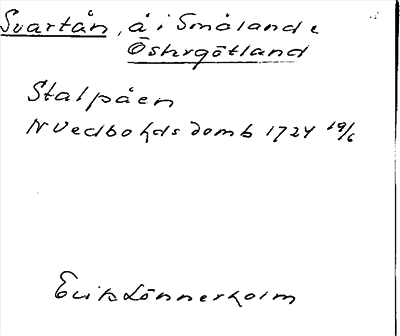 Svartån, å i Småland &
Östergötland
Stalpåen
N Vedbo hds domb 1724 19/6
Erik Lönnerholm